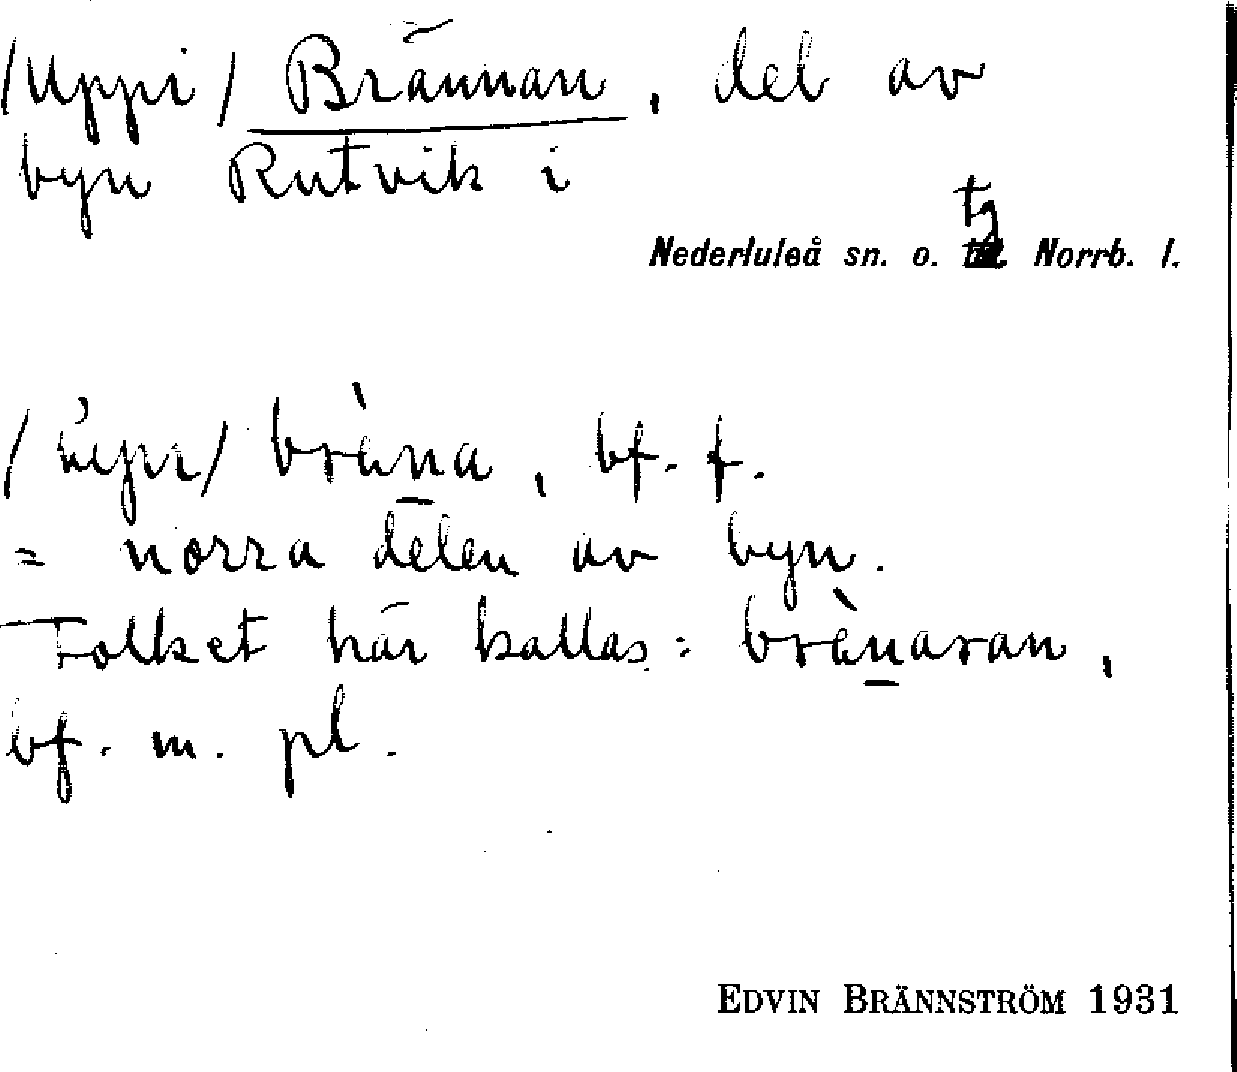 /Uppi/ Brännan, del av
byn Rutvik i
Nederluleå sn. o. tg Norrb. l.
/ùpi/ bràna, bf. f.
= norra delen av byn.
Folket här kallas: brànaran,
bf. m. pl.
EDVIN BRÄNNSTRÖM 1931